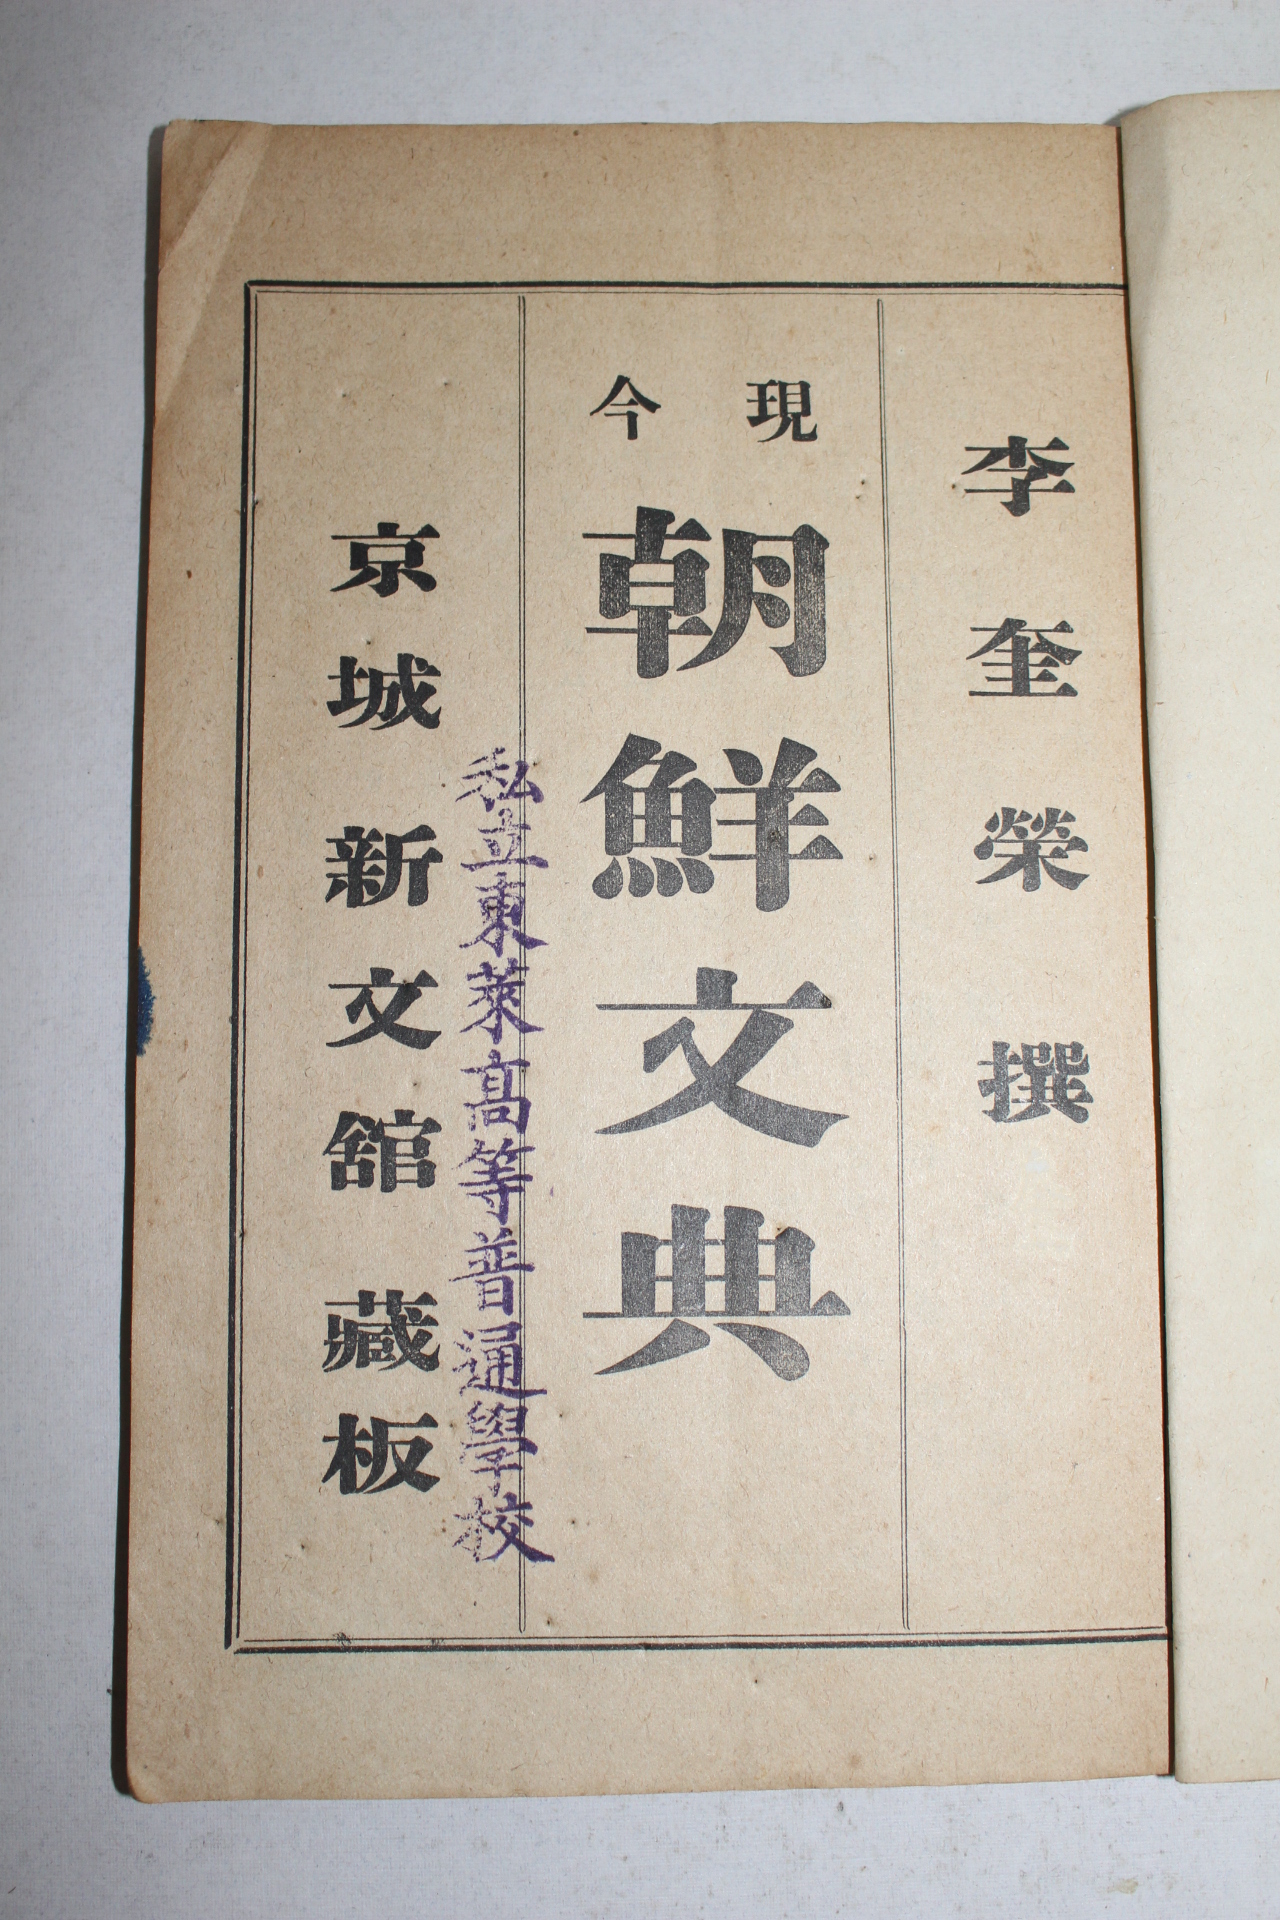 李奎榮撰
現今
朝鮮文典
私立東萊高等普通學校
京城新文舘藏板